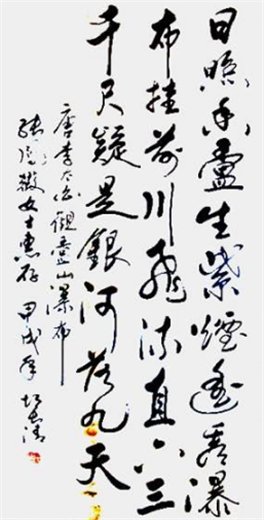 日照香盧生紫煙遙看瀑
布挂前川飛流直下三
千尺疑是銀河落九天
唐李太白觀廬山瀑布
女士惠存 甲戌年